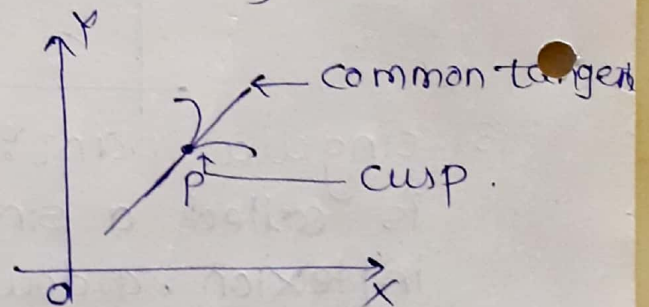 Y
common tangen
P
cusp.
O
X